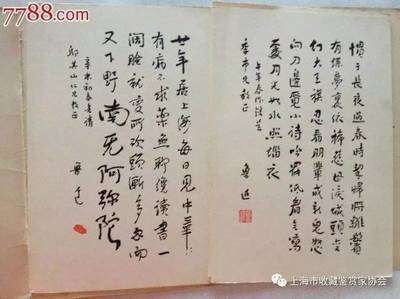 7788.com
慣于長夜過春時挈婦將雛鬢
有絲夢裏依稀慈母淚城頭變
幻大王旗忍看朋輩成新鬼怒
向刀邊覓小詩吟罷低眉無寫
處月光如水照緇衣
午年春作錄
季市兄教正
魯迅
廿年居上海每日見中華
有病不求藥無聊才讀書一
闊臉就變所砍頭漸多忽而
又下野南无阿彌陀
辛未初春書請
邬其山仁兄教正
魯迅
上海市收藏鉴赏家协会